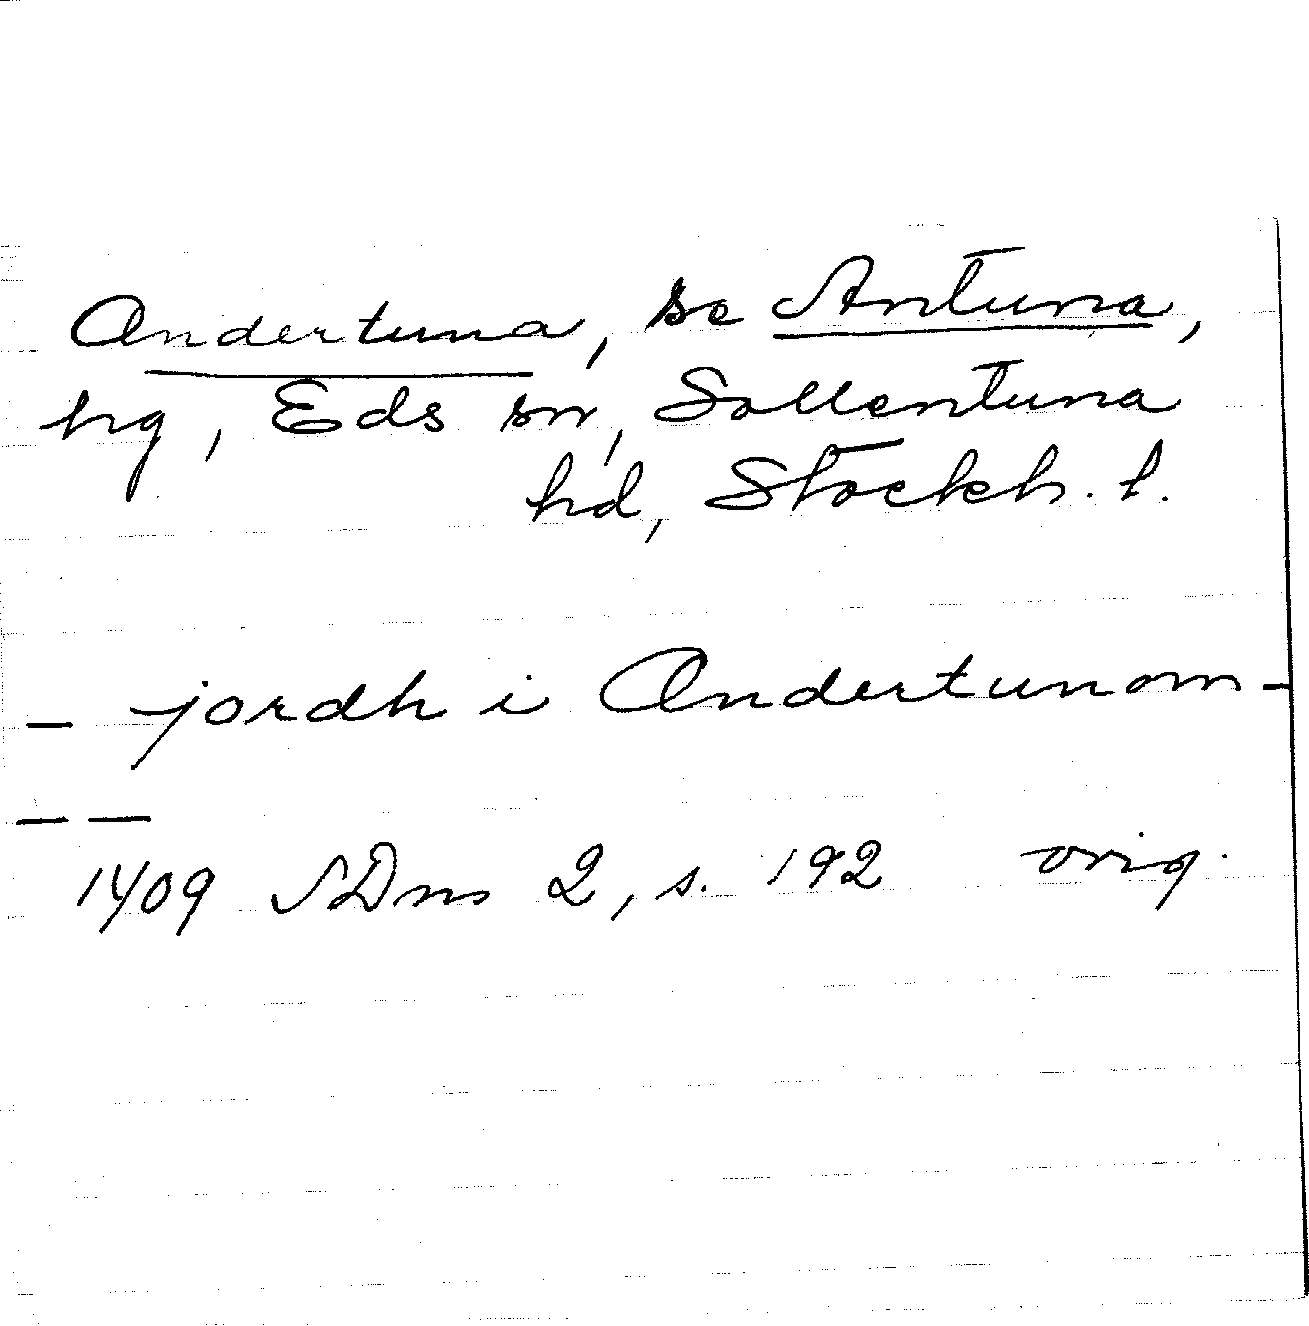 Andertuna, se Antuna,
hg, Eds sn, Sollentuna
hd, Stockh. l.
– jordh i Andertunom –
– –
1409 SDns 2, s. 192 orig.